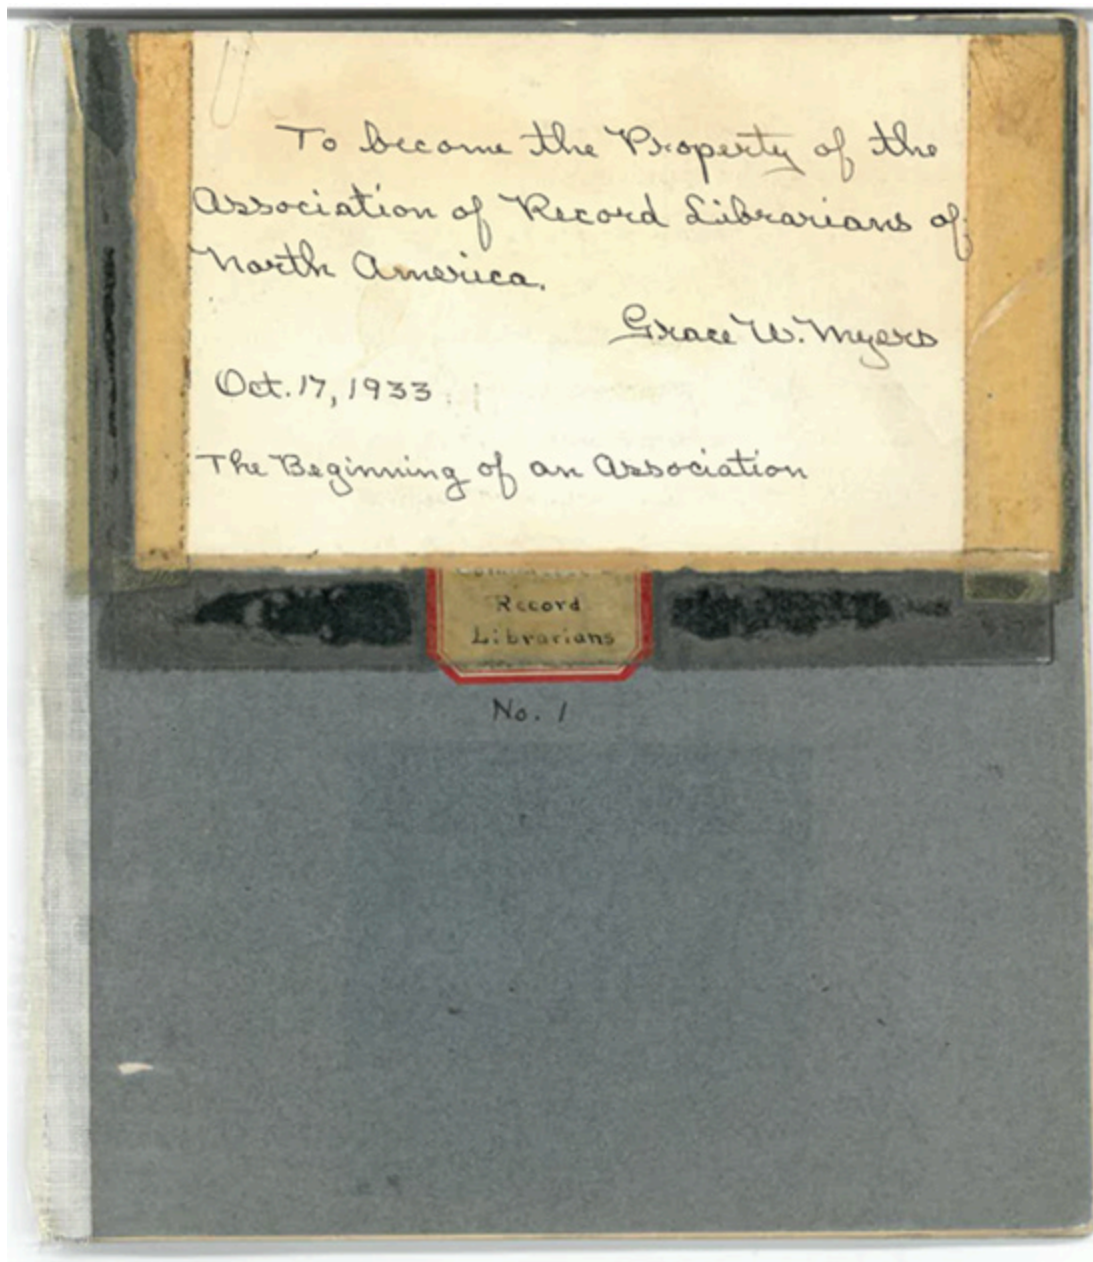 To become the Property of the
Association of Record Librarians of
North America.
Grace W. Myers
Oct. 17, 1933
The Beginning of an Association
Record
Librarians
No. 1